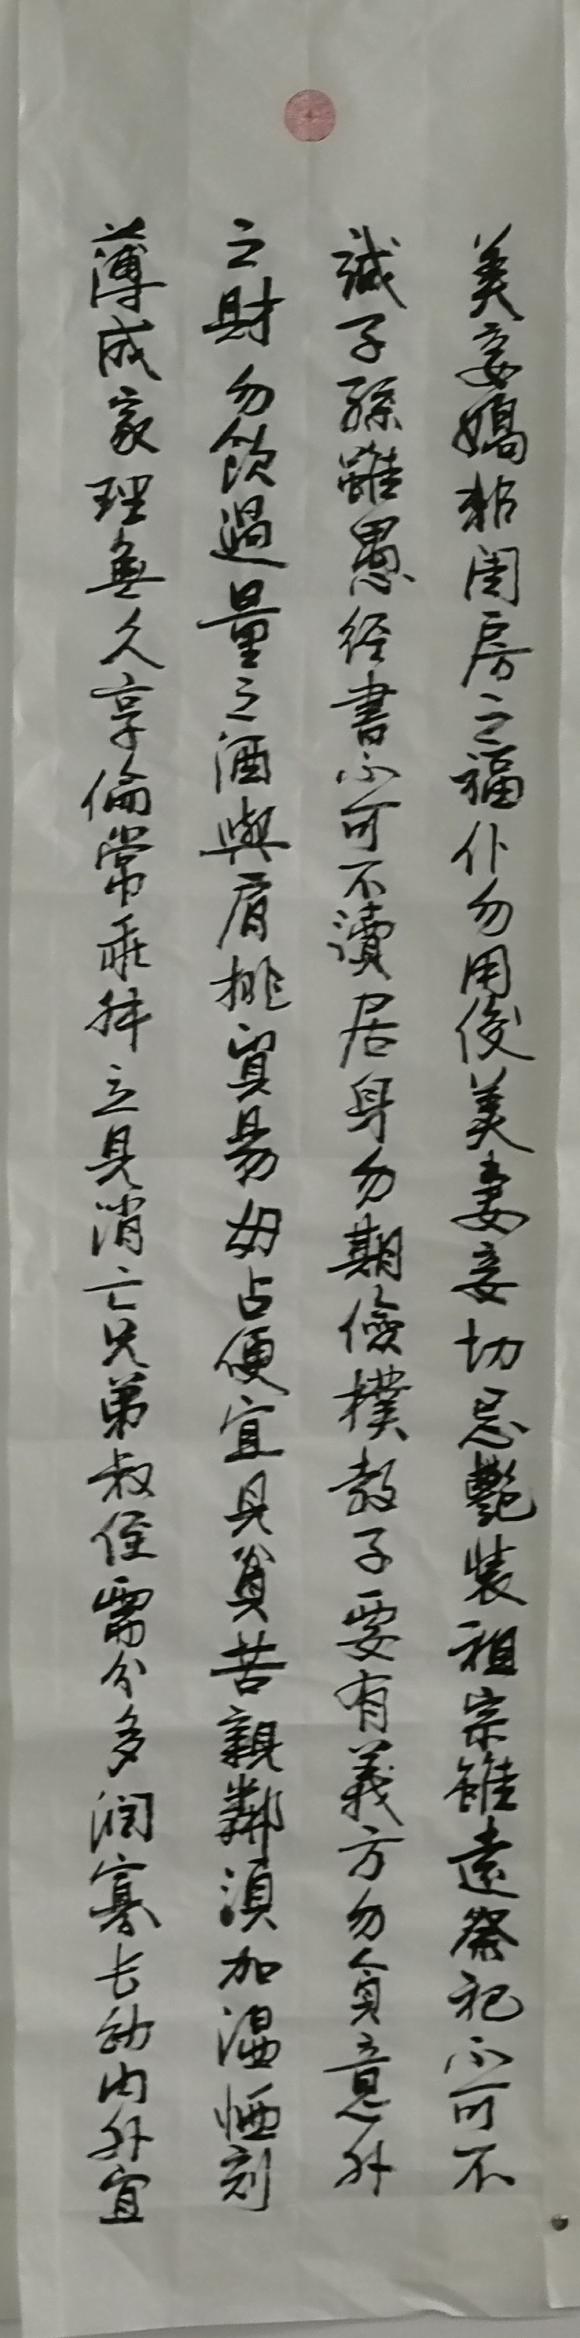 美妾嬌粧閨房之福仆勿用俊美妻妾切忌艷裝祖宗雖遠祭祀不可不
誠子孫雖愚径書不可不讀居身勿期儉樸教子要有義方勿貪意外
之財勿飲過量之酒與肩挑貿易毋占便宜見貧苦親鄰須加温恤刻
薄成家理無久享倫常乖舛立見消亡兄弟叔侄需分多潤寡長幼内外宜